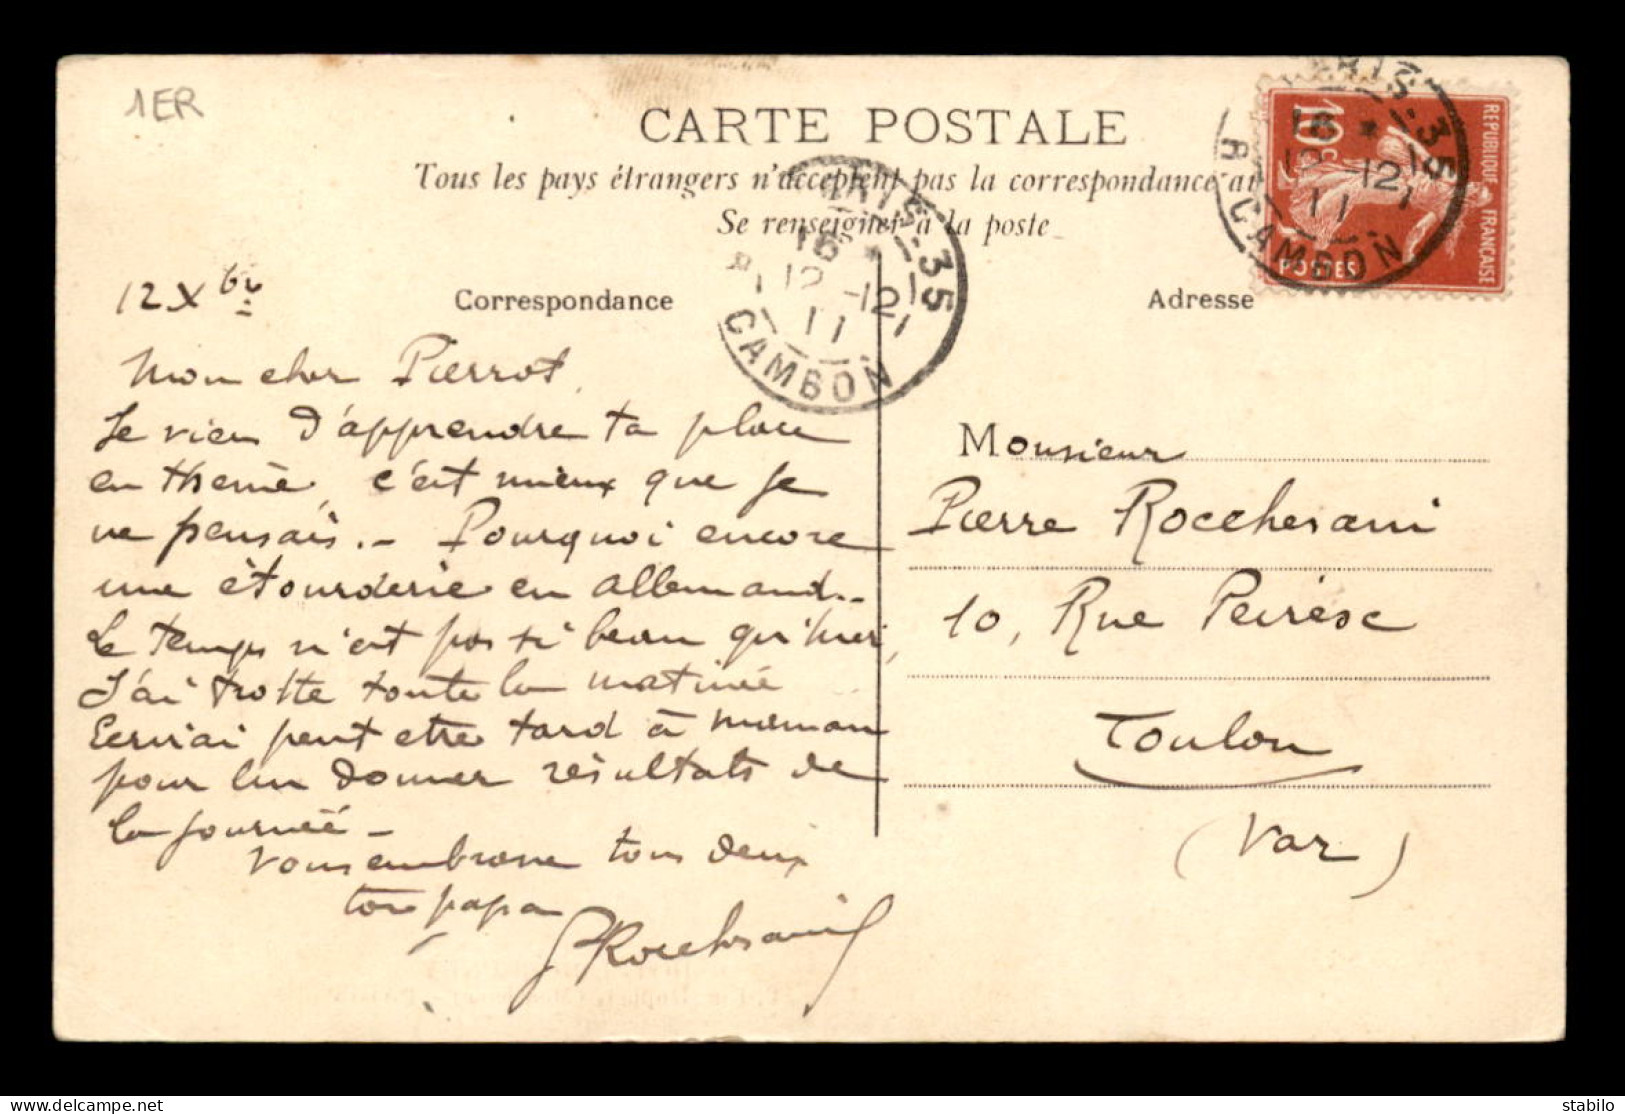 1ER
CARTE POSTALE
Tous les pays étrangers n'acceptent pas la correspondance au
Se renseigner à la poste
PARIS-35
16 *
12 -12
11
R. CAMBON
PARIS-35
16 *
12 -12
11
R. CAMBON
REPUBLIQUE FRANÇAISE
10c
POSTES
12 Xbre
Correspondance
Adresse
Mon cher Pierrot,
Je viens d'apprendre ta place
en thème, c'est mieux que je
ne pensais. - Pourquoi encore
une étourderie en allemand. -
Le temps n'est pas si beau qu'hier,
J'ai trotté toute la matinée
Ecrirai peut etre tard à maman
pour lui donner résultats de
la journée -
Vous embrasse tous deux
ton papa
Rocchesani
Monsieur
Pierre Rocchesani
10, Rue Peiresc
Toulon
(Var)
stabilo